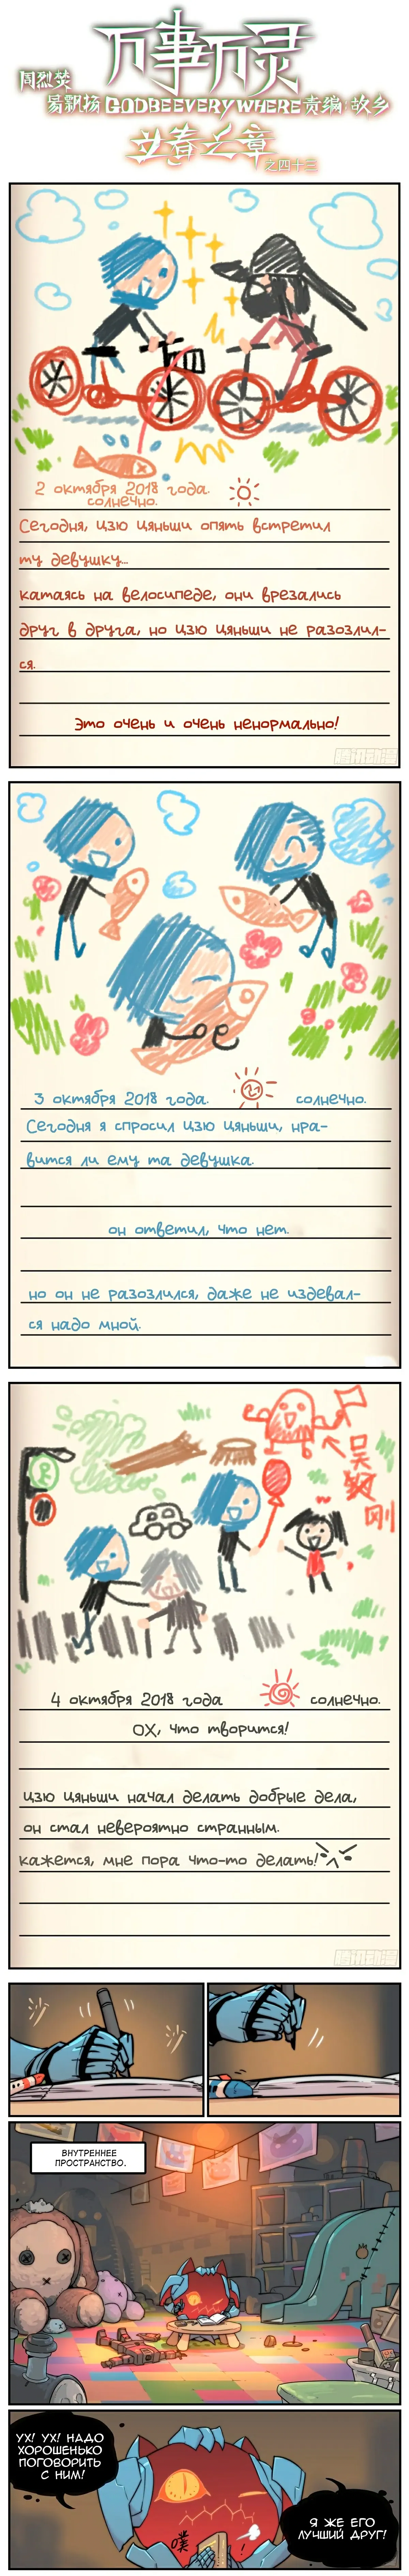 万事万灵
周烈焚
易飘扬 GODBEEVERYWHERE 责编:故乡
立春之章
之四十三
2 октября 2018 года.
солнечно.
Сегодня, Цзю Цяньши опять встретил
ту девушку...
катаясь на велосипеде, они врезались
друг в друга, но Цзю Цяньши не разозлил-
ся.
Это очень и очень ненормально!
腾讯动漫
3 октября 2018 года. солнечно.
Сегодня я спросил Цзю Цяньши, нра-
вится ли ему та девушка.
он ответил, что нет.
но он не разозлился, даже не издевал-
ся надо мной.
吴
刚
4 октября 2018 года солнечно.
ОХ, что творится!
Цзю Цяньши начал делать добрые дела,
он стал невероятно странным.
кажется, мне пора что-то делать!
腾讯动漫
ВНУТРЕННЕЕ
ПРОСТРАНСТВО.
УХ! УХ! НАДО
ХОРОШЕНЬКО
ПОГОВОРИТЬ
С НИМ!
噗
!
Я ЖЕ ЕГО
ЛУЧШИЙ ДРУГ!